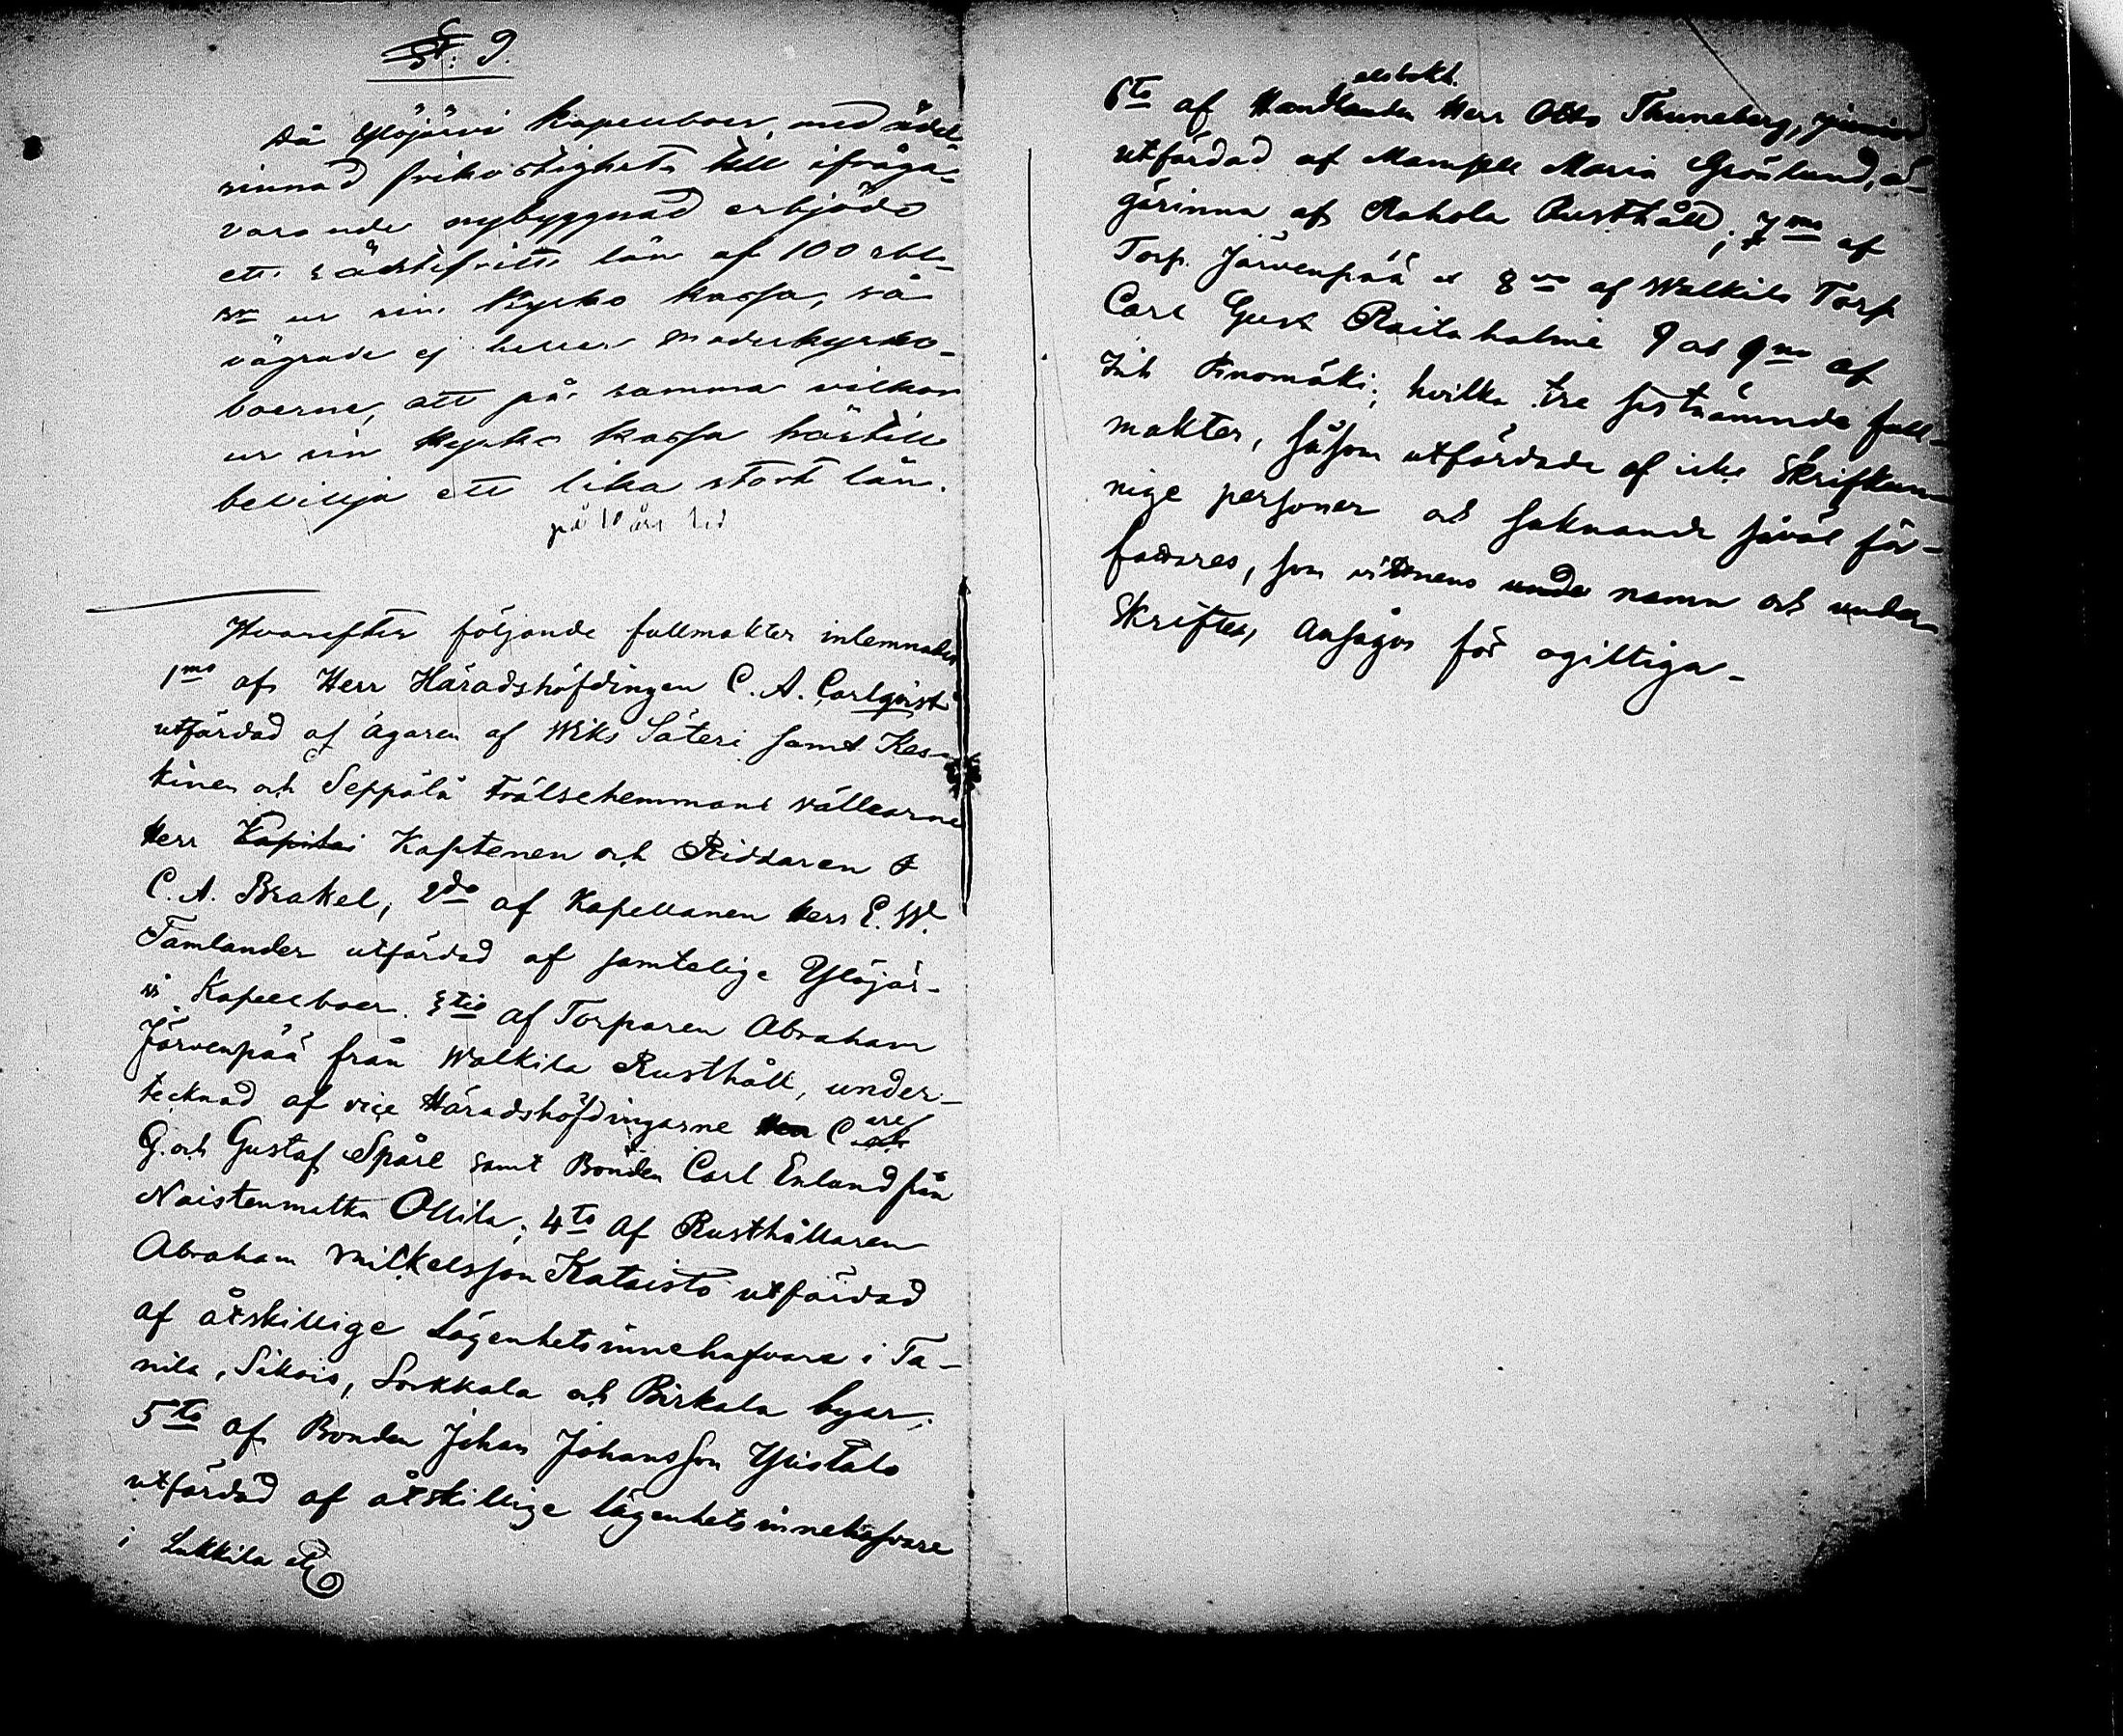 §. 9.
Då Ylöjärvi Kapellboer, med ädel-
sinnad frikostighet till ifråga-
varande nybyggnad erbjödo
ett räntefritt lån af 100 rbl
Sr ur sin Kyrko kassa, så
vägrade ej heller moderkyrko-
boerne, att på samma vilkor
ur sin Kyrko kassa härtill
bevilja ett lika stort lån.
på 10 års tid
Hvarefter följande fullmakter inlemnades
1mo af Herr Häradshöfdingen C. A. Carlqvist
utfärdad af ägaren af Wiks Säteri samt Kes-
kinen och Seppälä frälsehemmans rållearne
Herr Kapitai Kaptenen och Riddaren
C. A. Brakel, 2do af Kapellanen Herr E. W.
Tamlander utfärdad af samtelige Ylöjär-
vi Kapellboer. 3tio af Torparen Abraham
Järvenpää från Walkila Rusthåll, under-
tecknad af vice Häradshöfdingarne C
G. och Gustaf Spåre samt Bonden Carl Enlund från
Naistenmatka Ollila; 4to af Rusthållaren
Abraham Mickelsson Kataisto utfärdad
af åtskillige Lägenhetsinnehafvare i Ta-
nila, Sikois, Sorkkala och Birkala byar;
5to af Bonden Johan Johansson Ylistalo
utfärdad af åtskillige lägenhetsinnehafvare
i Lukkila
elsbokh.
6to af Handlanden Herr Otto Thuneberg, junior
utfärdad af Mamsell Maria Grönlund, ä-
garinna af Rahola Rusthåll; 7mo af
Torp. Järvenpää 8vo af Walkila Torp
Carl Gust Raitaholmi 9 och 9no af
Inh Finomäki; hvilka tre sistnämnde full-
makter, såsom utfärdade af icke Skrifkun-
nige personer och saknande såväl för-
fattares, som vittnens unde namn och under
Skrifter, ansågos för ogiltiga-